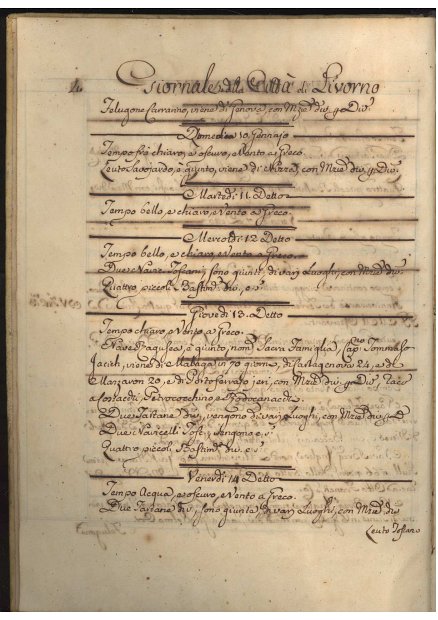 4. Giornale della Città di Livorno
Felugone Carranno, viene di Genova, con Mrie div. p. Div.
Domenica 10 Gennajo
Tempo frà chiaro, e oscuro, e Vento a Greco.
Leuto Savojardo, è giunto, viene di Nizza, con Mrie div. p. Div.
Martedì 11. Detto
Tempo bello, e chiaro, e Vento a Greco.
Mercoldì 12. Detto
Tempo bello, e chiaro e Vento a Greco.
Due Navic. Toscani, sono giunti di varj Luoghi, con Mrie div.
Quattro piccoli Bastim. div. e. s.
Giovedì 13. Detto
Tempo chiaro, e Vento a Greco.
Nave Ragusea, è giunta, nom. Sacra Famiglia, Cap. Tommaso
viene di Malaga in 70 giorni, di Cartagenova 24, e di
20, e di Portoferrajo jeri, con Mrie div. p. Div.
a Costachi, Petrococchino, e Rodocanachi.
Due Tartane div. vengono di varj Luoghi, con Mrie div.
Due Navicelli Tosc. vengono e. s.
Quattro piccoli Bastim. div. e. s.
Venerdì 14 Detto
Tempo Acqua, e oscuro, e Vento a Greco.
Due Tartane div. sono giunte di varj Luoghi, con Mrie div.
Leuto Toscano